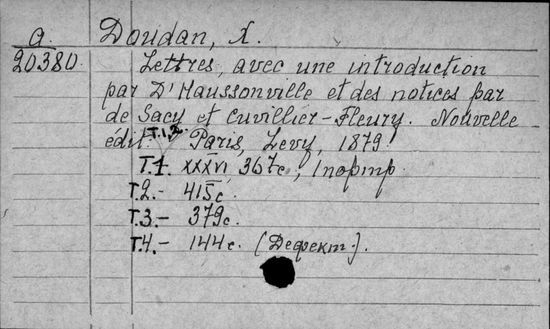 a. Doudan, X.
20380. Lettres, avec une introduction
par D'Haussonville et des notices par
de Sacy et Cuvillier-Fleury. Nouvelle
édit. T.1,2 Paris, Levy, 1879.
T.1. XXXVI, 367с., 1 портр.
T.2.- 415с
T.3.- 379с.
T.4.- 144с. (Дефект.).